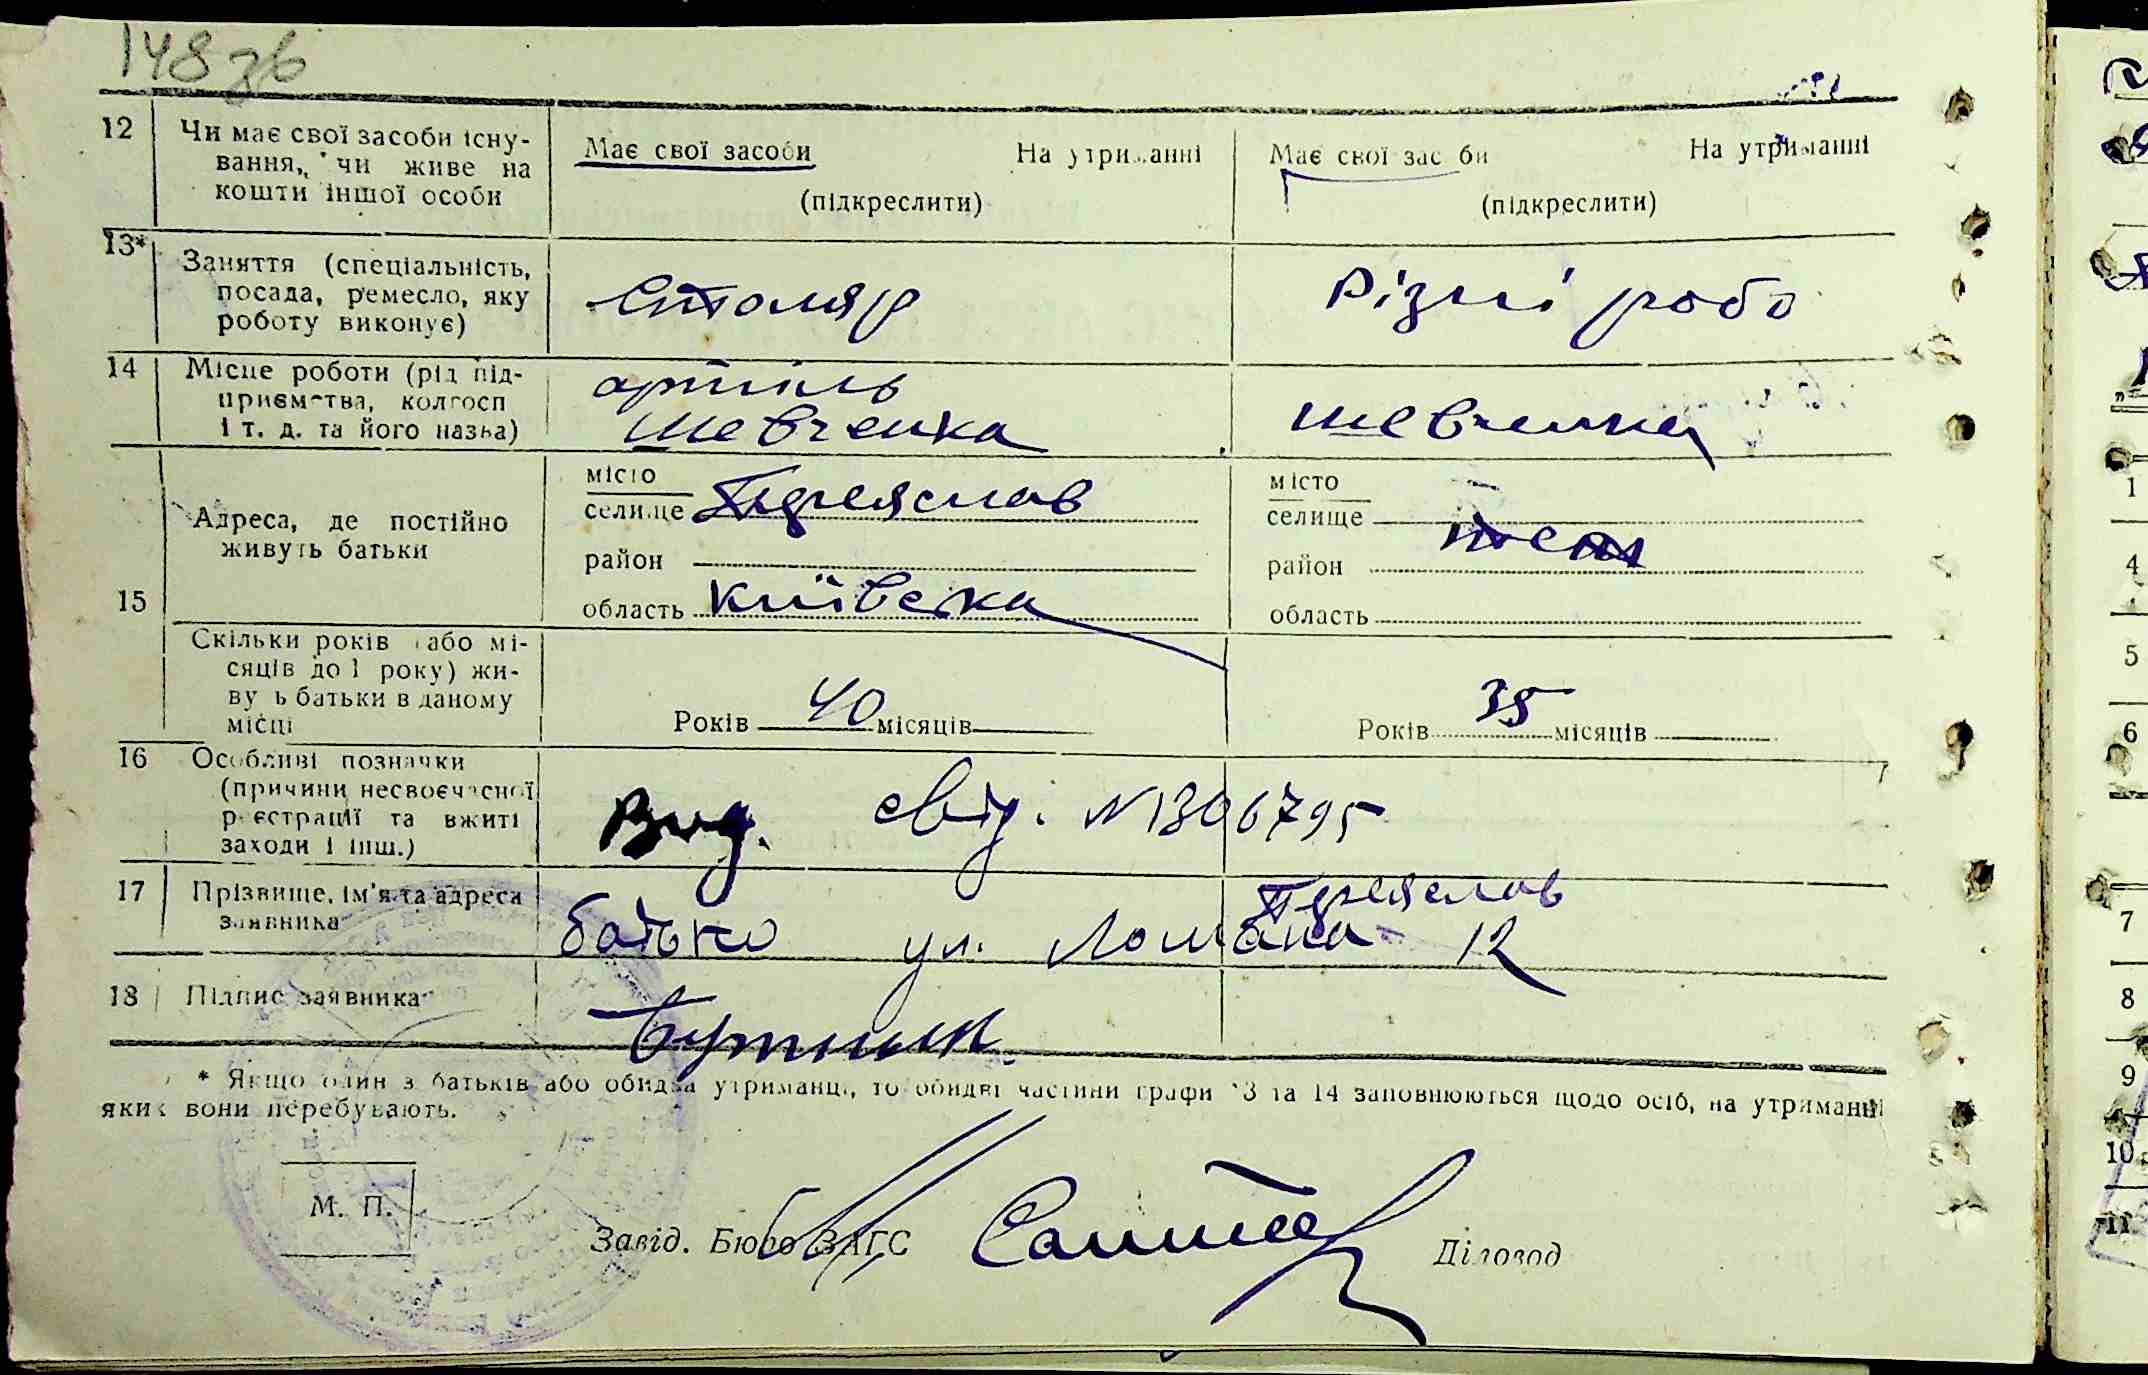 148 зв
12 Чи має свої засоби існу-
вання, чи живе на
кошти іншої особи
Має свої засоби На утриманні
(підкреслити)
Має свої засоби На утриманні
(підкреслити)
13* Заняття (спеціальність,
посада, ремесло, яку
роботу виконує)
Столяр
Різні робо
14 Місце роботи (рід під-
приємства, колгосп
і т. д. та його назва)
артіль
Шевченка
Шевченка
15 Адреса, де постійно
живуть батьки
місто
селище Переяслав
район
область Київська
місто
селище
район теж
область
Скільки років (або мі-
сяців до 1 року) жи-
вуть батьки в даному
місці
Років 40 місяців
Років 35 місяців
16 Особливі позначки
(причини несвоєчасної
реєстрації та вжиті
заходи і інш.)
Вид. свід. N 1306795
17 Прізвище, ім'я та адреса
заявника
Переяслав
батько ул. 12
18 Підпис заявника
* Якщо один з батьків або обидва утриманці, то обидві частини графи 13 та 14 заповнюються щодо осіб, на утриманні
яких вони перебувають.
М. П.
Завід. Бюро ЗАГС
Діловод
1
4
5
6
7
8
9
10
11